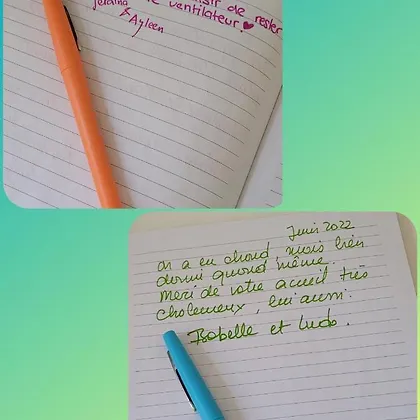 de rester
le ventilateur! ♥
& Ayleen
Juin 2022
on a eu chaud, mais bien
dormi quand même.
Merci de votre accueil très
chaleureux, lui aussi.
Isabelle et Ludo.